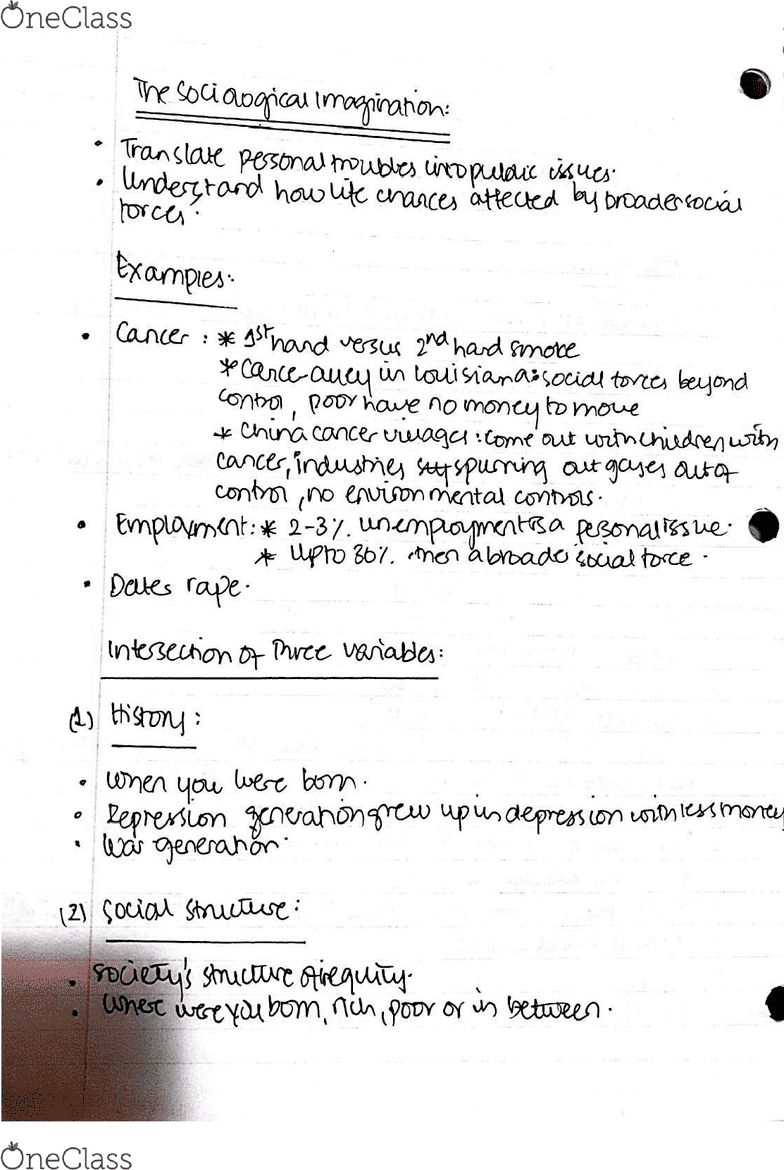 OneClass
The Sociological Imagination:
• Translate personal troubles into public issues.
• Understand how life chances affected by broader social
forces.
Examples:
• Cancer : * 1st hand versus 2nd hand smoke
* Cance alley in Louisiana: social forces beyond
control, poor have no money to move
* China cancer villages : come out with children with
cancer, industries spurring out gases out of
control, no environmental controls.
• Employment: * 2-3% unemployment is a personal issue.
* Up to 30% then a broader social force.
• Dates rape.
Intersection of Three variables:
(1) History:
• When you were born.
• Depression generation grew up in depression with less money
• War generation.
(2) Social structure:
• Society's structure of
• Where were you born, rich, poor or in between.
OneClass